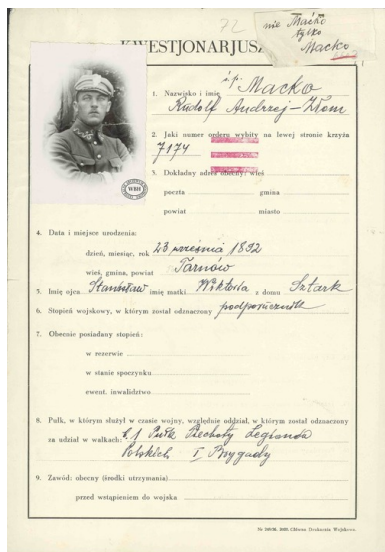 72
nie Maćko
tylko
Macko
KWESTJONARJUSZ
1. Nazwisko i imię ś.p. Macko
Rudolf Andrzej-Złom
2. Jaki numer orderu wybity na lewej stronie krzyża
7174
3. Dokładny adres obecny: wieś
poczta gmina
powiat miasto
WBH
4. Data i miejsce urodzenia:
dzień, miesiąc, rok 23 września 1892
wieś, gmina, powiat Tarnów
5. Imię ojca Stanisław imię matki Wiktoria z domu Sztark
6. Stopień wojskowy, w którym został odznaczony podporucznik
7. Obecnie posiadany stopień:
w rezerwie
w stanie spoczynku
ewent. inwalidztwo
8. Pułk, w którym służył w czasie wojny, względnie oddział, w którym został odznaczony
za udział w walkach: b. 1 Pułk Piechoty Legionów
Polskich I Brygady
9. Zawód: obecny (środki utrzymania)
przed wstąpieniem do wojska
Główna Drukarnia Wojskowa.